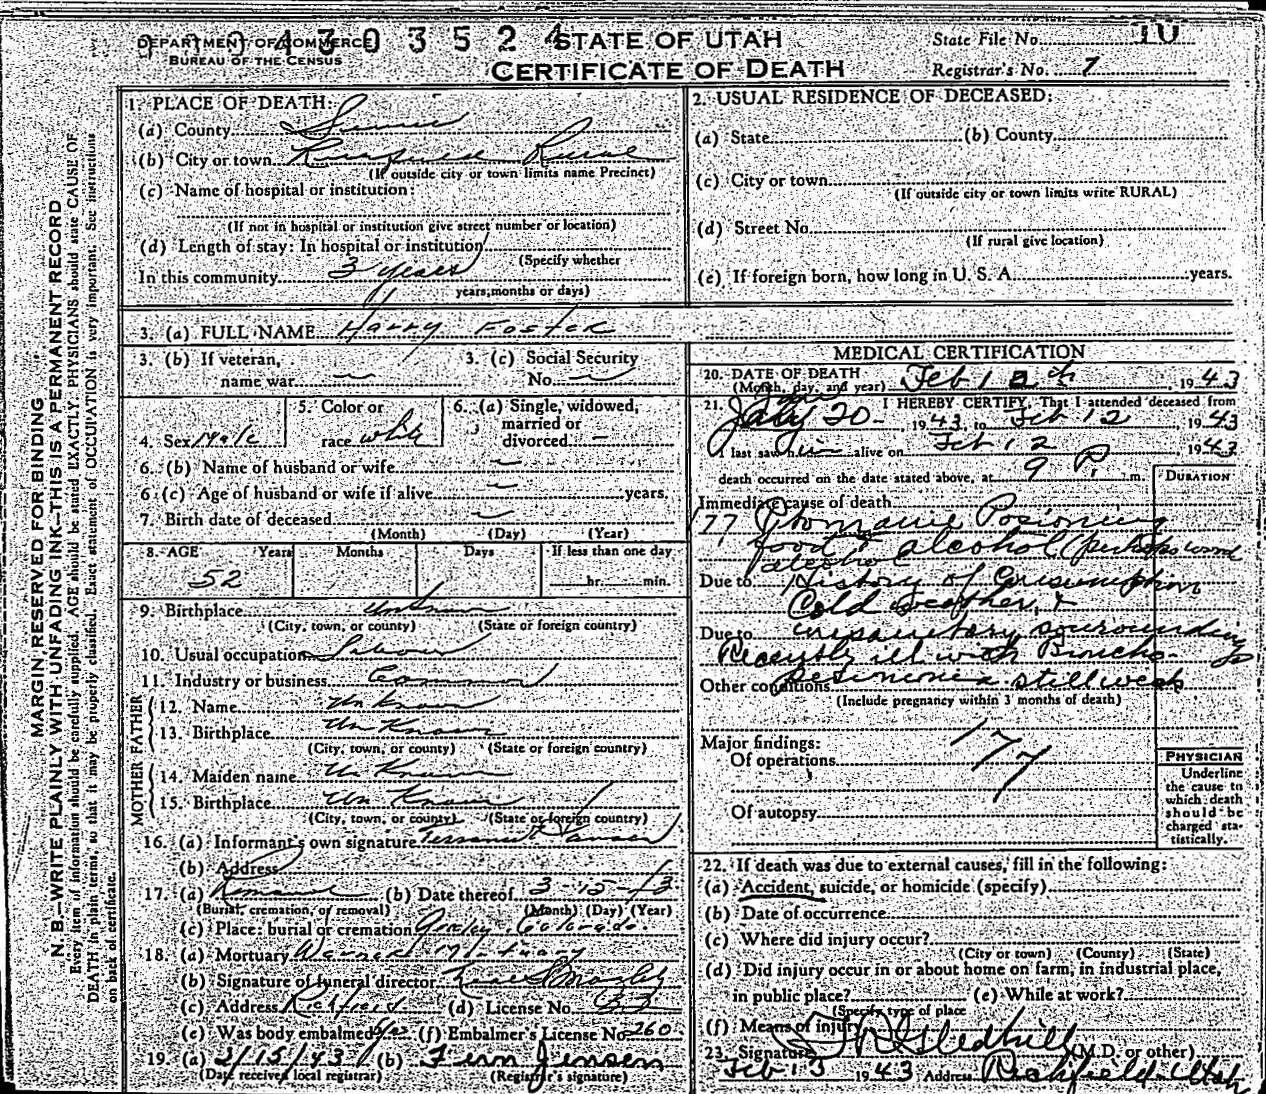 DEPARTMENT OF COMMERCE
BUREAU OF THE CENSUS
4 3 0 3 5 2 4
STATE OF UTAH
CERTIFICATE OF DEATH
State File No. 10
Registrar's No. 7
MARGIN RESERVED FOR BINDING
N. B.—WRITE PLAINLY WITH UNFADING INK—THIS IS A PERMANENT RECORD
Every item of information should be carefully supplied. AGE should be stated EXACTLY. PHYSICIANS should state CAUSE OF
DEATH in plain terms, so that it may be properly classified. Exact statement of OCCUPATION is very important. See instructions
on back of certificate.
1. PLACE OF DEATH:
(a) County
(b) City or town Rural
(If outside city or town limits name Precinct)
(c) Name of hospital or institution:
(If not in hospital or institution give street number or location)
(d) Length of stay: In hospital or institution
(Specify whether
In this community 3 years
years, months or days)
2. USUAL RESIDENCE OF DECEASED:
(a) State (b) County
(c) City or town
(If outside city or town limits write RURAL)
(d) Street No.
(If rural give location)
(e) If foreign born, how long in U. S. A. years.
3. (a) FULL NAME Harry Foster
3. (b) If veteran,
name war —
3. (c) Social Security
No. —
4. Sex Male
5. Color or
race white
6. (a) Single, widowed,
married or
divorced —
6. (b) Name of husband or wife —
6. (c) Age of husband or wife if alive — years.
7. Birth date of deceased —
(Month) (Day) (Year)
8. AGE Years Months Days If less than one day
52 hr. min.
9. Birthplace Unknown
(City, town, or county) (State or foreign country)
10. Usual occupation Labour
11. Industry or business Common
FATHER
12. Name Unknown
13. Birthplace Un Known
(City, town, or county) (State or foreign country)
MOTHER
14. Maiden name Un Known
15. Birthplace Un Known
(City, town, or county) (State or foreign country)
16. (a) Informant's own signature
(b) Address
17. (a) Removal (b) Date thereof 3-15-43
(Burial, cremation, or removal) (Month) (Day) (Year)
(c) Place: burial or cremation Colorado
18. (a) Mortuary
(b) Signature of funeral director
(c) Address Richfield (d) License No.
(e) Was body embalmed yes (f) Embalmer's License No. 260
19. (a) 2/15/43 (b) Fern Jensen
(Date receive local registrar) (Registrar's signature)
MEDICAL CERTIFICATION
20. DATE OF DEATH
(Month, day, and year) Feb 12th, 1943
21. I HEREBY CERTIFY, That I attended deceased from
20-, 1943, to Feb 12, 1943
I last saw him alive on Feb 12 1943
death occurred on the date stated above, at 9 P. m.
DURATION
Immediate cause of death
177 Ptomaine Posioning
food & alcohol (perhaps wood
alcohol
Due to History of Consumption
Cold weather, &
Due to unsanitary sourroundings
Recently ill with Broncho-
Other conditions still weak
(Include pregnancy within 3 months of death)
177
Major findings:
Of operations
Of autopsy
PHYSICIAN
Underline
the cause to
which death
should be
charged sta-
tistically.
22. If death was due to external causes, fill in the following:
(a) Accident, suicide, or homicide (specify)
(b) Date of occurrence
(c) Where did injury occur?
(City or town) (County) (State)
(d) Did injury occur in or about home on farm, in industrial place,
in public place? (e) While at work?
(Specify type of place
(f) Means of injury
23. Signature Gledhill (M.D. or other)
Feb 13 1943 Address Richfield-Utah